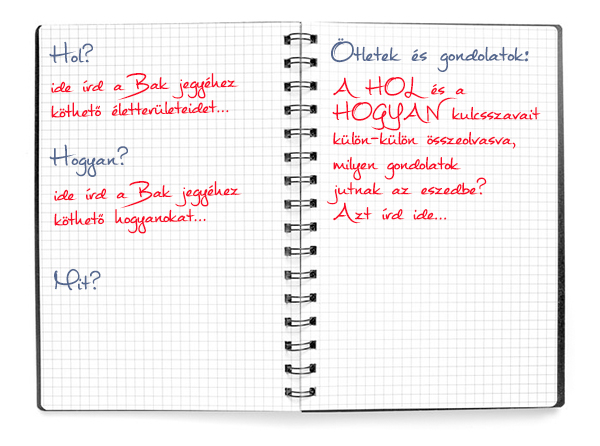 Hol?
ide írd a Bak jegyéhez
köthető életterületeidet...
Hogyan?
ide írd a Bak jegyéhez
köthető hogyanokat...
Mit?
Ötletek és gondolatok:
A HOL és a
HOGYAN kulcsszavait
külön-külön összeolvasva,
milyen gondolatok
jutnak az eszedbe?
Azt írd ide...